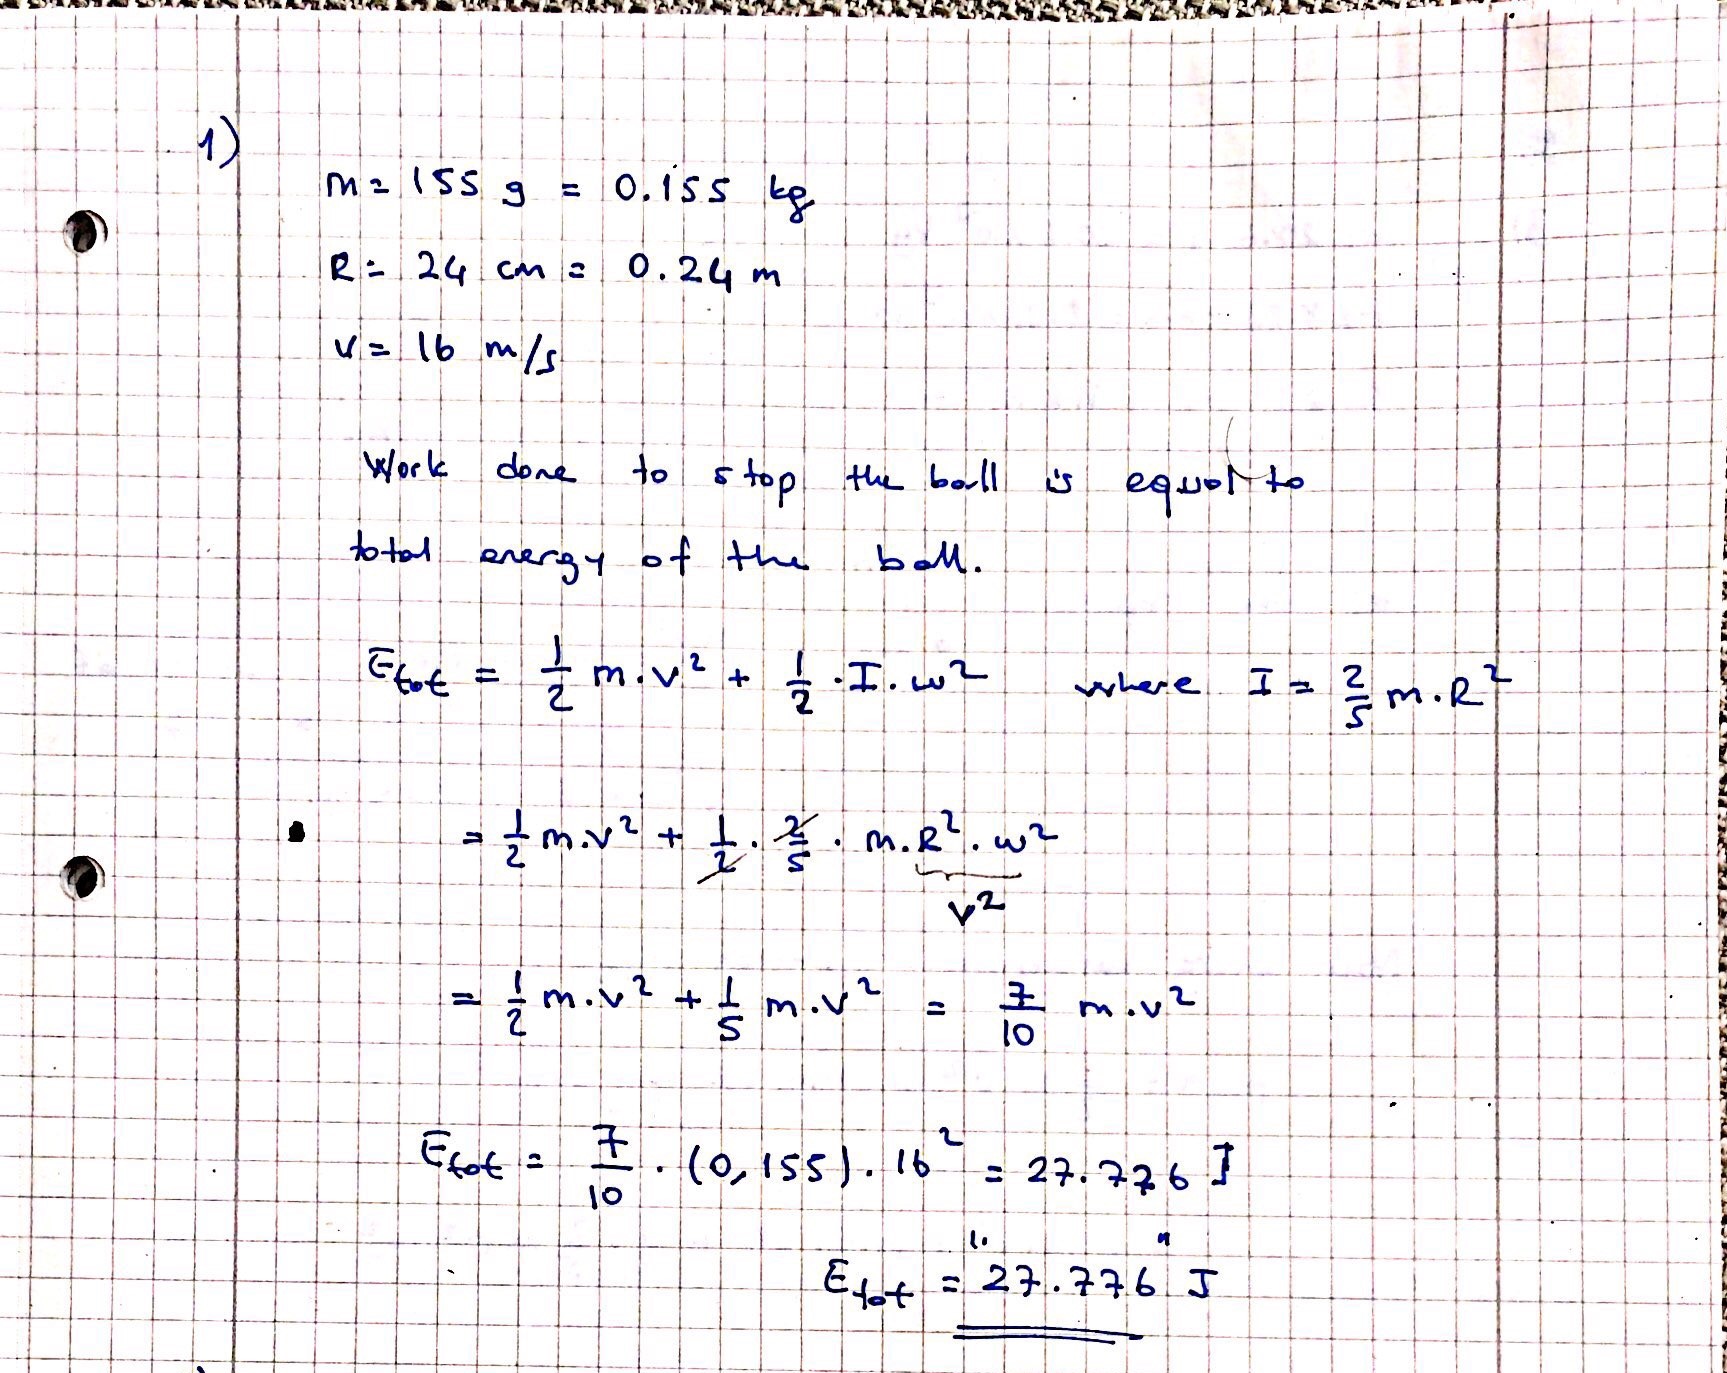 1)
m = 155 g = 0.155 kg
R = 24 cm = 0.24 m
v = 16 m/s
Work done to stop the ball is equal to
total energy of the ball.
Etot = 1/2 m.v² + 1/2 . I. w² where I = 2/5 m.R²
= 1/2 m.v² + 1/2 . 2/5 . m.R². w²
v²
= 1/2 m.v² + 1/5 m.v² = 7/10 m.v²
Etot = 7/10 . (0,155). 16² = 27.776 J
Etot = "27.776" J